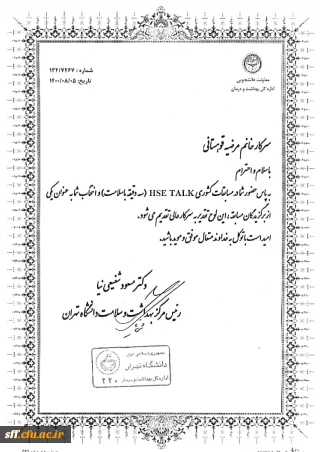 معاونت دانشجویی
اداره کل بهداشت و درمان
شماره : ۱۳۲/۷۲۶۷
تاریخ: ۱۴۰۰/۰۸/۰۵
سرکار خانم مرضیه قوهستانی
با سلام و احترام
به پاس حضور شما در مسابقات کشوری HSE TALK (سه دقیقه با سلامت) و انتخاب شما به عنوان یکی
از برگزیدگان مسابقه، این لوح تقدیر به سرکار عالی تقدیم می شود.
امید است با توکل به خداوند متعال موفق و موید باشید.
دکتر مسعود شفیعی نیا
رئیس مرکز بهداشت و سلامت دانشگاه تهران
جمهوری اسلامی ایران
دانشگاه تهران
اداره کل بهداشت و درمان
۲۲۰
sff.cfu.ac.ir